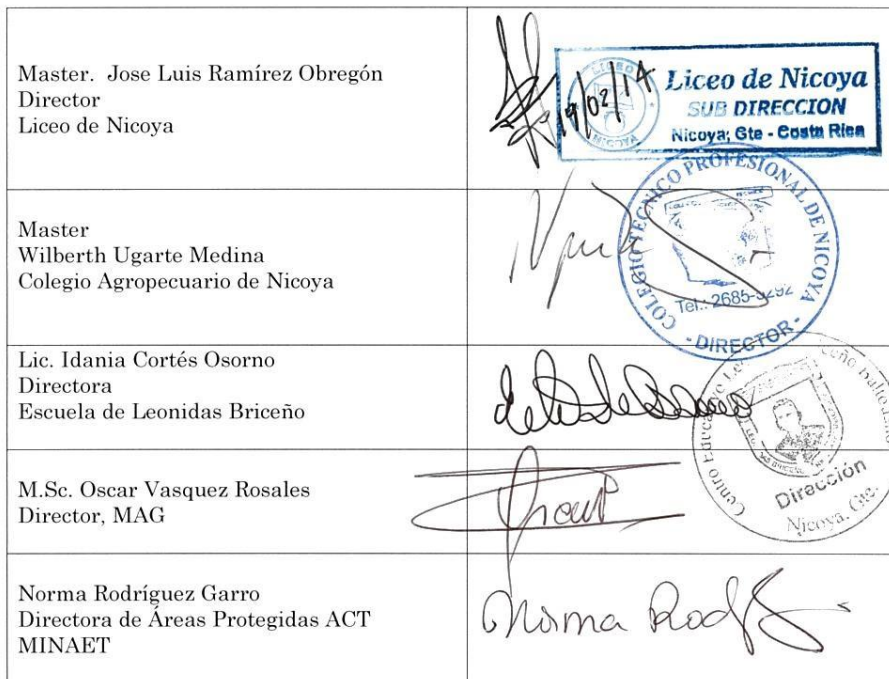 Master. Jose Luis Ramírez Obregón
Director
Liceo de Nicoya
19/02/14
LICEO
Liceo de Nicoya
SUB DIRECCION
Nicoya, Gte - Costa Rica
Master
Wilberth Ugarte Medina
Colegio Agropecuario de Nicoya
COLEGIO TECNICO PROFESIONAL DE NICOYA
Tel.: 2685-3292
- DIRECTOR -
Lic. Idania Cortés Osorno
Directora
Escuela de Leonidas Briceño
Centro
Dirección
Nicoya, Gte.
M.Sc. Oscar Vasquez Rosales
Director, MAG
Norma Rodríguez Garro
Directora de Áreas Protegidas ACT
MINAET
Norma